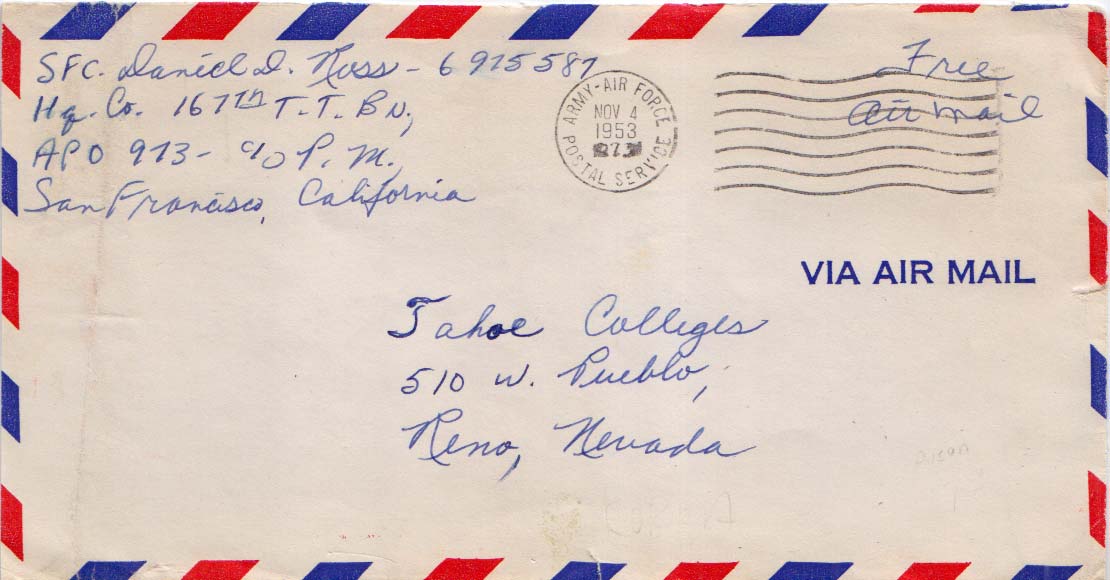 SFC. Daniel D. Ross - 6 975 587
Hq. Co. 167th T.T. Bn,
APO 973- c/o P.M.
San Francisco, California
ARMY-AIR FORCE
NOV 4
1953
POSTAL SERVICE
Free
air mail
VIA AIR MAIL
Tahoe Colleges
510 W. Pueblo,
Reno, Nevada